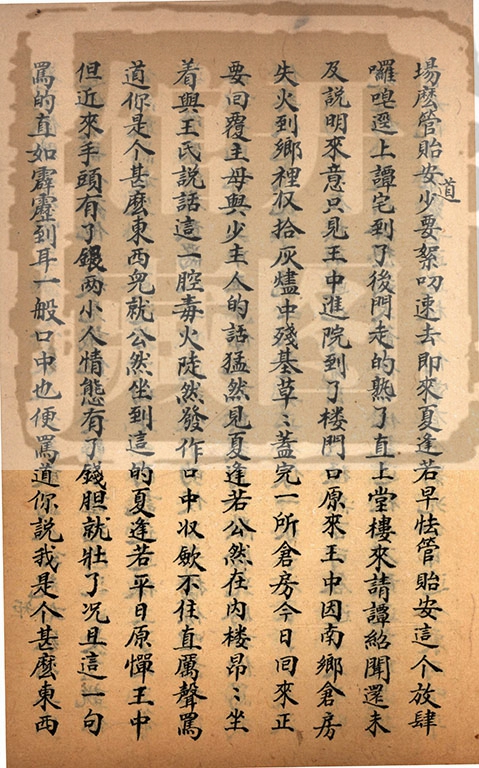 場麽管貽安道少要絮叨速去即來夏逢若早怯管貽安這个放肆
囉唣遅上譚宅到了後門走的熟了直上堂樓來請譚紹聞還未
及説明來意只見王中進院到了楼門口原來王中因南鄉倉房
失火到鄉裡仅拾灰燼中殘基草〻蓋完一所倉房今日回來正
要回覆主母與少主人的話猛然見夏逢若公然在内楼昂〻坐
着與王氏説話這一腔毒火陡然發作口中収歛不住直厲聲罵
道你是个甚麽東西児就公然坐到這的夏逢若平日原憚王中
但近來手頭有了銀两小人情態有了錢胆就壮了况且這一句
罵的直如霹靂到耳一般口中也便罵道你説我是个甚麽東西